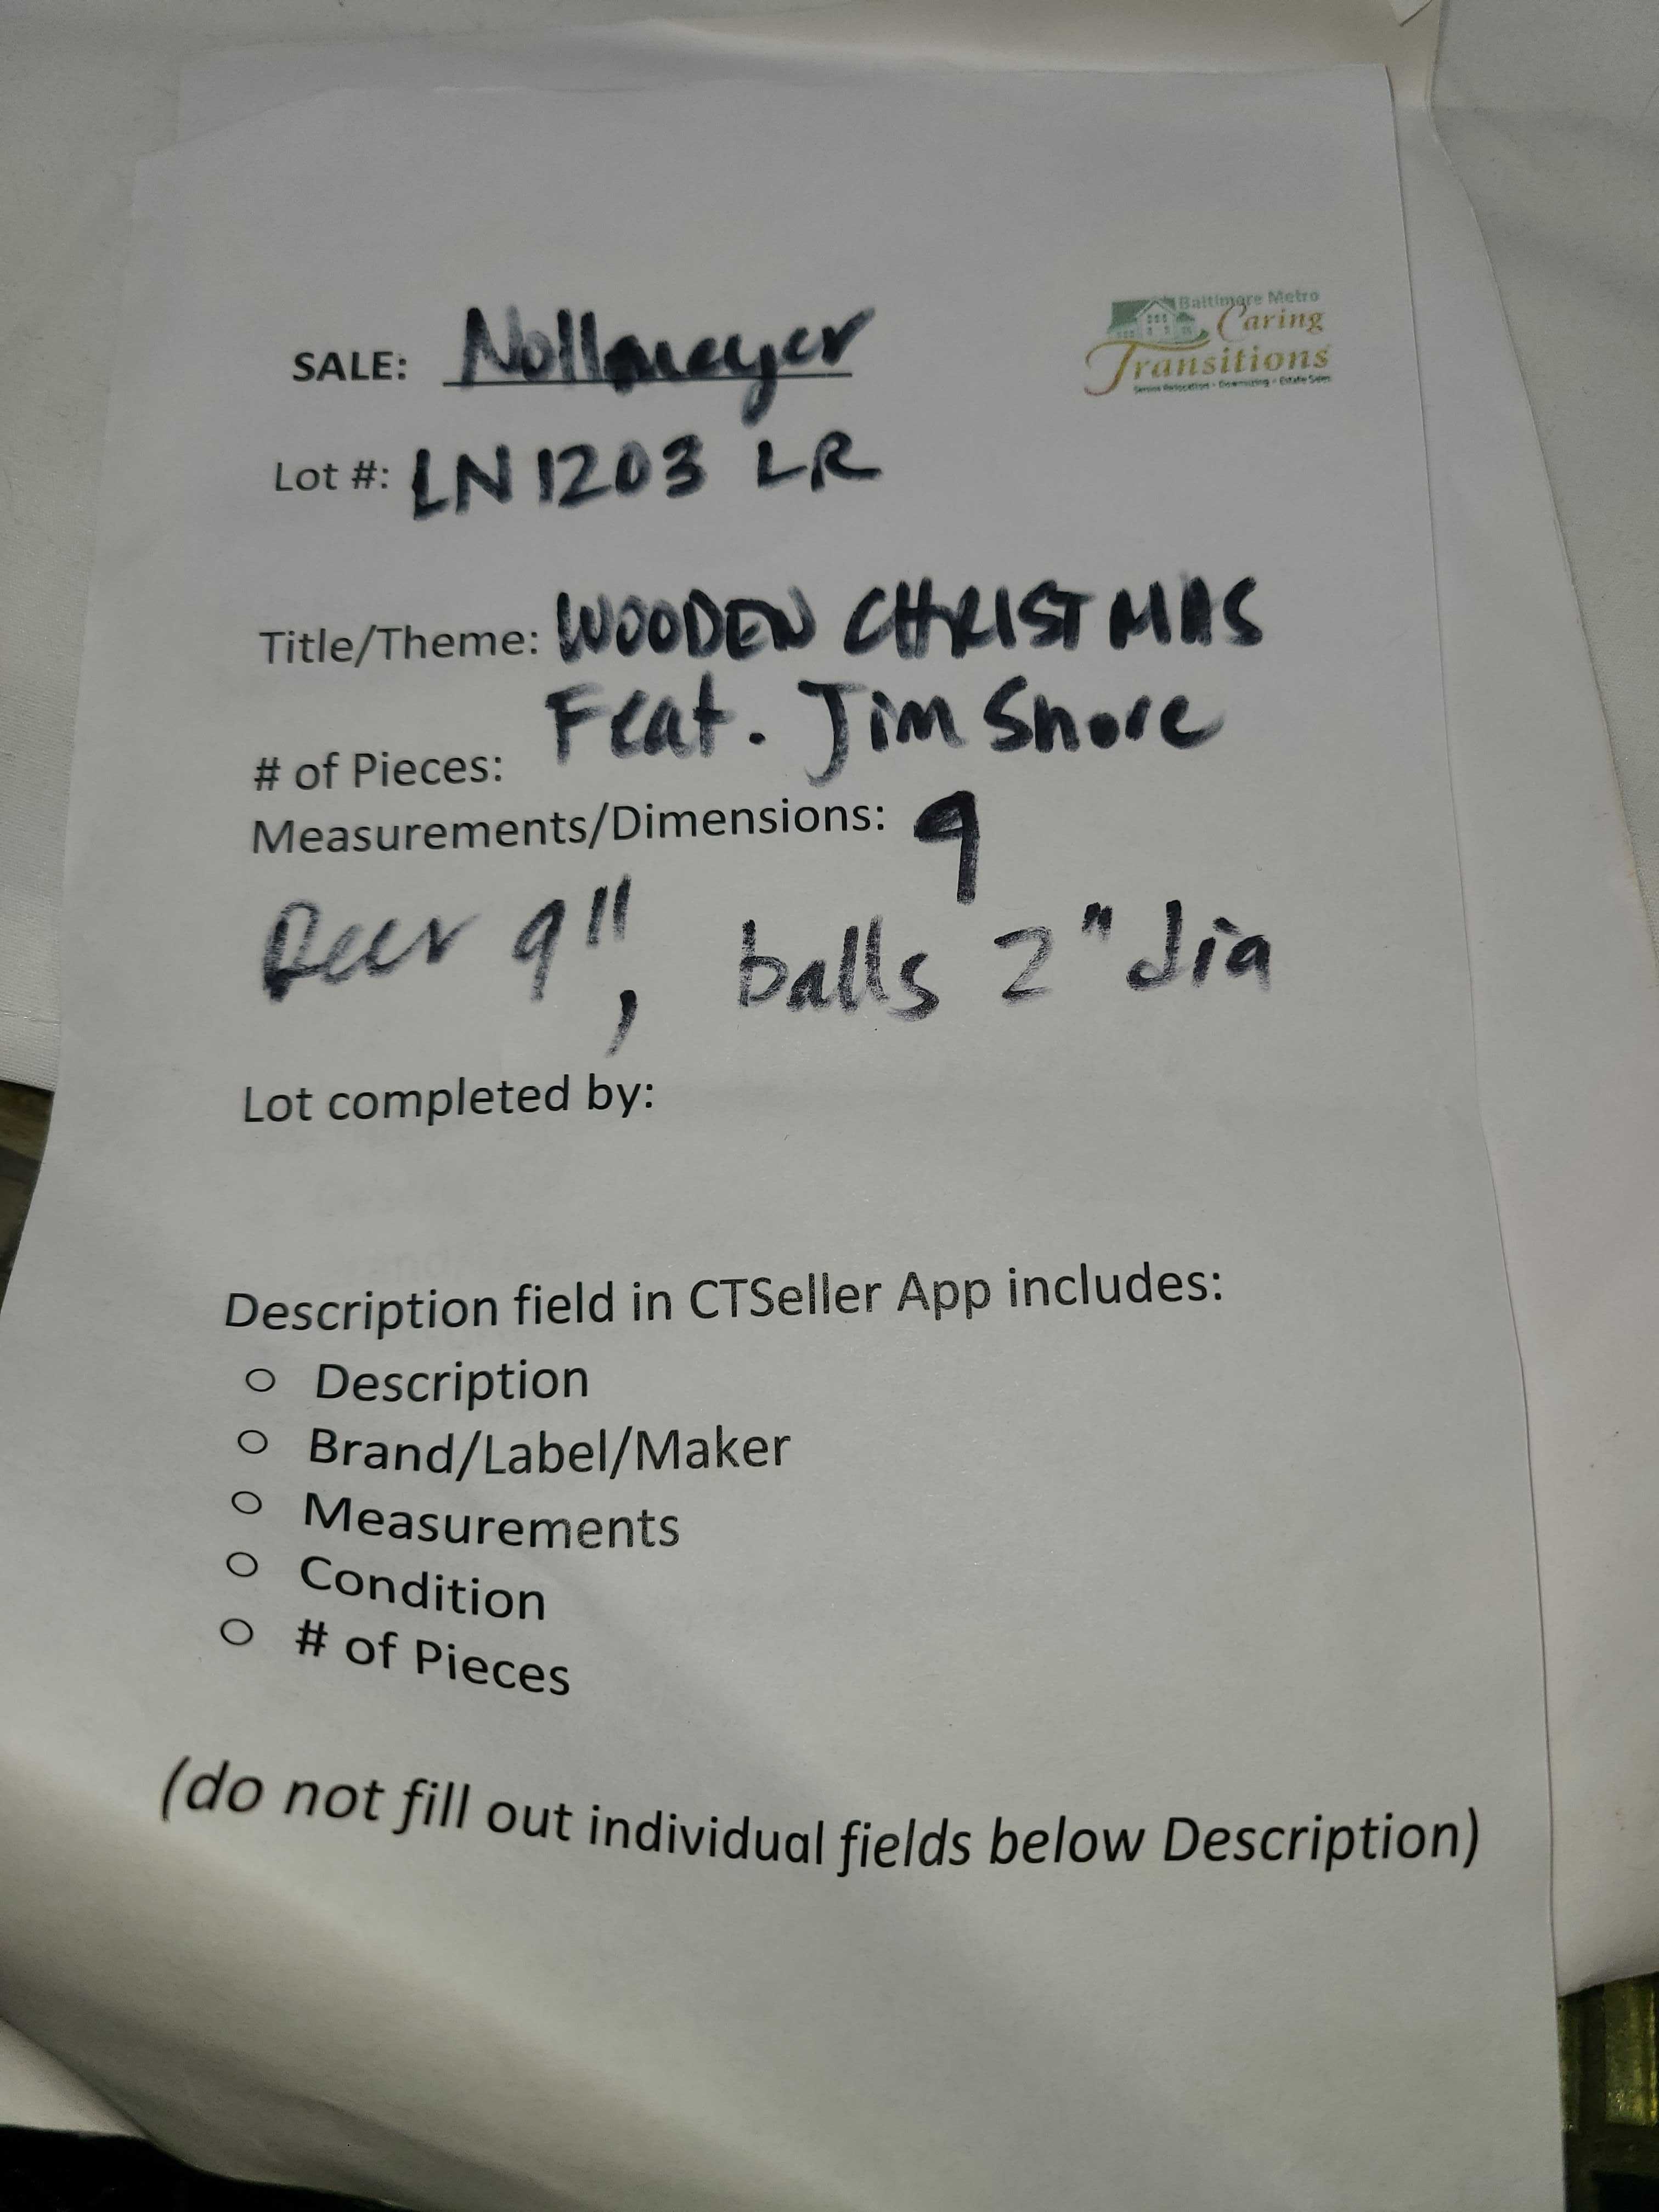 Baltimore Metro
Caring
Transitions
Senior Relocation • Downsizing • Estate Sales
SALE: Nollmeyer
Lot #: LN1203 LR
Title/Theme: WOODEN CHRISTMAS
Feat. Jim Shore
# of Pieces:
Measurements/Dimensions: 9
Deer 9", balls 2" dia
Lot completed by:
Description field in CTSeller App includes:
○ Description
○ Brand/Label/Maker
○ Measurements
○ Condition
○ # of Pieces
(do not fill out individual fields below Description)